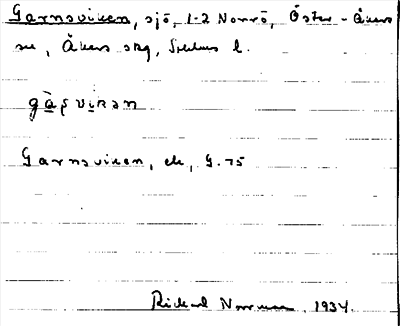 Garnsviken, sjö, 1-2 Norrö, Öster-Åkers
sn, Åkers skg, Sthlms l.
gàʂvikən
Garnsviken, ek, G. 75
Rickard Norrman 1934.